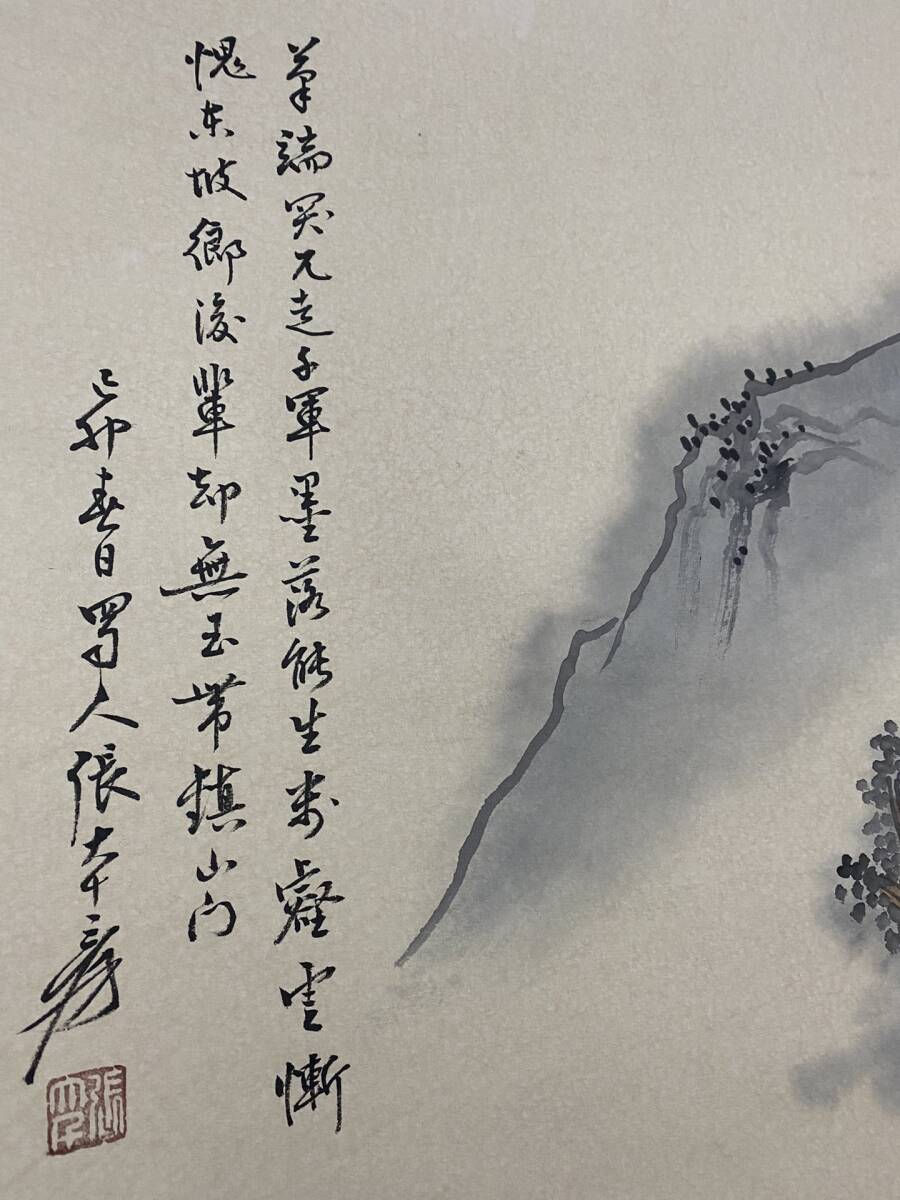 筆端突兀走千軍墨落能生萬壑雲慚
愧東坡鄉後輩却無玉帶鎮山門
己卯春日蜀人張大千爰
張大千